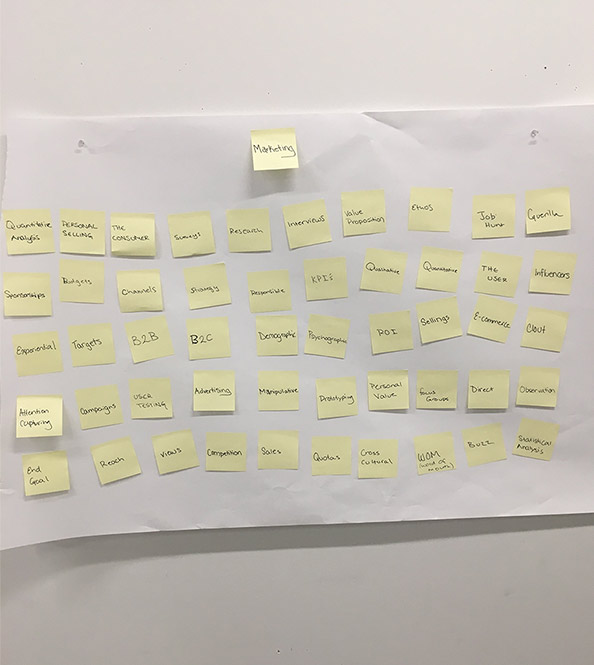 Marketing
Quantitative
Analysis
PERSONAL
SELLING
THE
CONSUMER
Surveys
Research
Interviews
Value
Proposition
Ethos
Job
Hunt
Guerilla
Sponsorships
Budgets
Channels
Strategy
Responsible
KPI's
Qualitative
Quantitative
THE
USER
Influencers
Exponential
Targets
B2B
B2C
Demographic
Psychographic
ROI
Sellings
E-commerce
Clout
Attention
Capturing
Campaigns
USER
TESTING
Advertising
Manipulative
Prototyping
Personal
Value
Focus
Groups
Direct
Observation
End
Goal
Reach
Views
Competition
Sales
Quotas
Cross
Cultural
WOM
(word of
mouth)
BUZZ
Statistical
Analysis